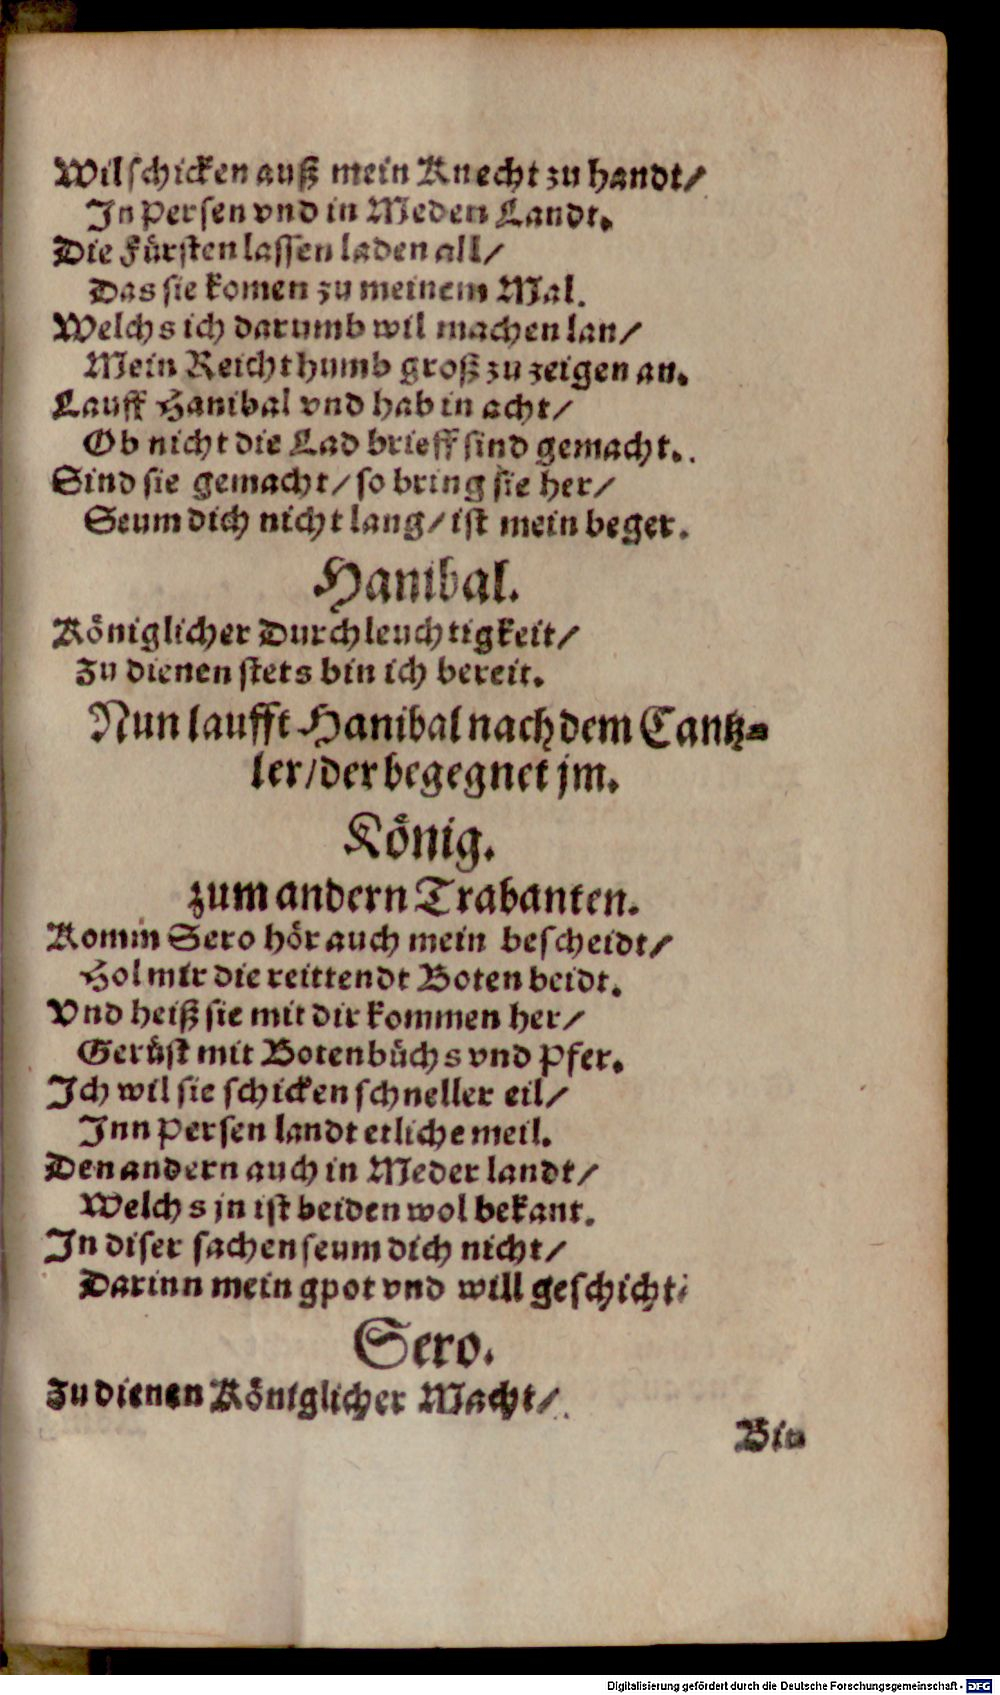 Wil schicken auß mein Knecht zu handt/
In Persen vnd in Meden Landt.
Die Fürsten lassen laden all/
Das sie komen zu meinem Mal.
Welchs ich darumb wil machen lan/
Mein Reichthumb groß zu zeigen an.
Lauff Hanibal vnd hab in acht/
Ob nicht die Lad brieff sind gemacht.
Sind sie gemacht/ so bring sie her/
Seum dich nicht lang/ ist mein beger.
Hanibal.
Königlicher Durchleuchtigkeit/
Zu dienen stets bin ich bereit.
Nun laufft Hanibal nach dem Cantz-
ler/ der begegnet jm.
König.
zum andern Trabanten.
Komm Sero hör auch mein bescheidt/
Hol mir die reittendt Boten beidt.
Vnd heiß sie mit dir kommen her/
Gerüst mit Botenbüchs vnd Pfer.
Ich wil sie schicken schneller eil/
Inn Persen landt etliche meil.
Den andern auch in Meder landt/
Welchs jn ist beiden wol bekant.
In diser sachen seum dich nicht/
Darinn mein gpot vnd will geschicht.
Sero.
Zu dienen Königlicher Macht/
Bin
Digitalisierung gefördert durch die Deutsche Forschungsgemeinschaft - DFG